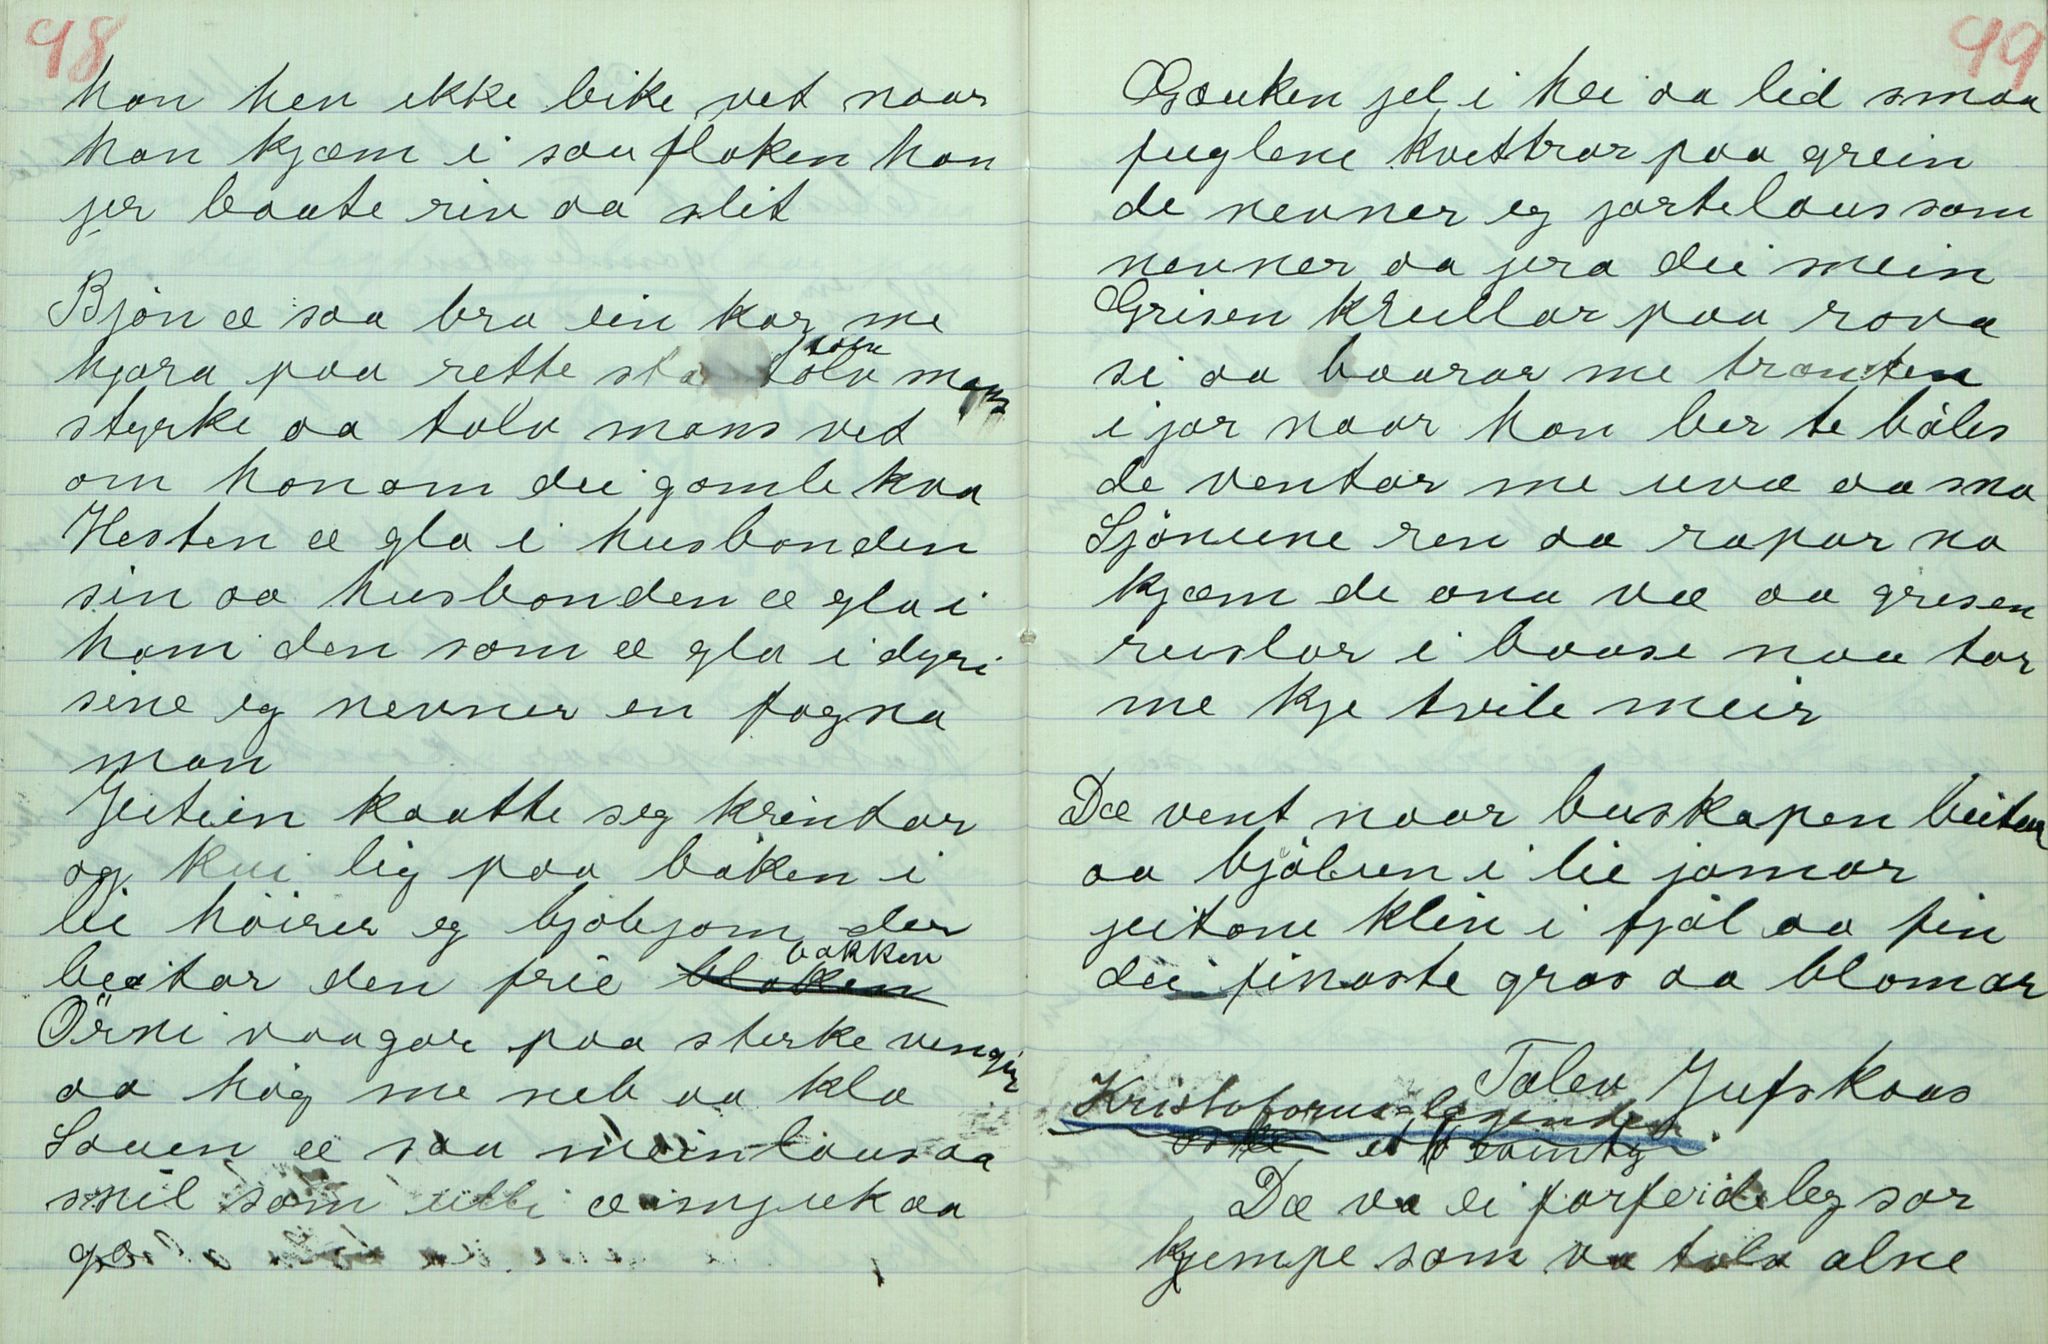 98
han hen ikke like vet naar
han kjæm i saufloken han
jer baate riv aa slit
Bjøn æ saa bra ein kar me
hjara paa rette sta tolv mans
styrke aa tolv mans vet
om honom dei gamle kva
Hesten æ gla i husbonden
sin aa husbonden æ gla i
ham den som æ gla i dyri
sine eg nevner en fagna
man
Jeitein kaatte seg krintar
og kui lig paa baken i
lii høirer eg bjølgjom der
beitar den frie bakken
Ørni vaagar paa sterke vengjer
aa høg me neb aa klo
Sauen æ saa meinlaus aa
snil som ulli æ mjuk aa
go
99
Gauken jel i hei aa lid smaa
fuglene kvettrar paa grein
de nevner eg jartelaus som
nevner aa jera dei mein
Grisen krullar paa rova
si aa baarar me trauten
i jor naar han ber te båles
de ventar me uvæ aa sno
Sjonune ren aa rapar na
kjæm de ana væ aa grisen
ruslar i baase naa tar
me kje tvile meir
Dæ vent naar buskapen beitar
aa bjølun i lie jamar
jeitane kliv i fjøl aa fin
dei finaste gras aa blomar
Talev Jufskaas
Kristoforus legende
et eventy
Dæ va ei forfeideleg sar
kjempe som va tolv alne